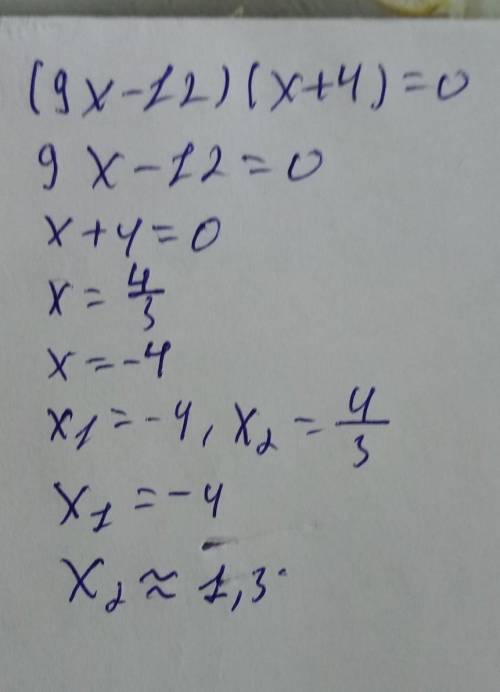 (9x-12)(x+4)=0
9x-12=0
x+4=0
x=4/3
x=-4
x1=-4, x2=4/3
x1=-4
x2≈1,3